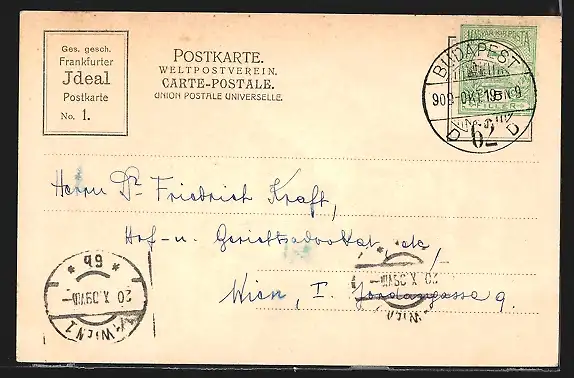 Ges. gesch.
Frankfurter
Jdeal
Postkarte
No. 1.
POSTKARTE.
WELTPOSTVEREIN.
CARTE-POSTALE.
UNION POSTALE UNIVERSELLE.
MAGYAR KIR. POSTA
5 FILLER
BUDAPEST
909 OKT 19
D 62 D
Herrn Dr Friedrich Kraft,
Hof- u. Gerichtsadvokat etc,
Wien, I. Jordangasse 9.
* 6b *
20 X 09 VIII
WIEN 1
20 X 09 VIII
WIEN 1